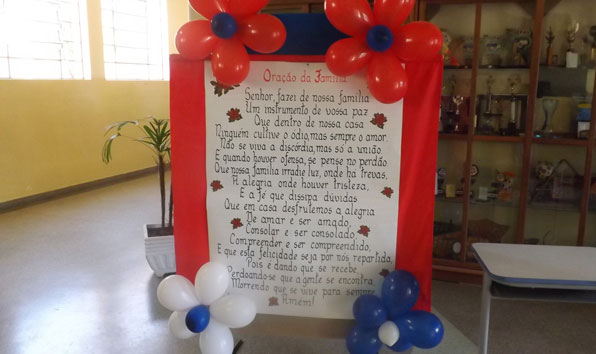 Oração da Família
Senhor, fazei de nossa família
Um instrumento de vossa paz
Que dentro de nossa casa
Ninguém cultive o ódio, mas sempre o amor.
Não se viva a discórdia, mas só a união.
E quando houver ofensa, se pense no perdão
Que nossa família irradie luz, onde há trevas,
A alegria onde houver tristeza,
E a fé que dissipa dúvidas
Que em casa desfrutemos a alegria
De amar e ser amado,
Consolar e ser consolado,
Compreender e ser compreendido,
E que esta felicidade seja por nós repartida,
Pois é dando que se recebe,
Perdoando-se que a gente se encontra
Morrendo que se vive para sempre
Amém!